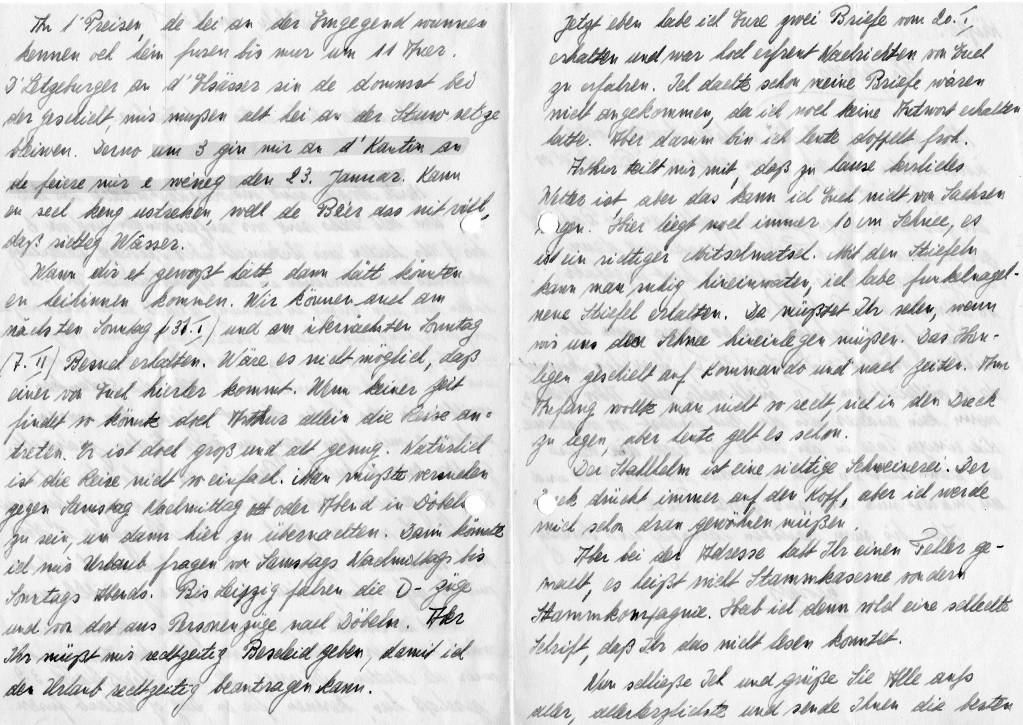 An d'Preisen, de hei an der Emgegend wunnen
kennen och heim fueren bis muer um 11 Auer.
D'Letzeburger an d'Elsässer sin de dommst bei
der geschicht, mir mußen alt hei an der Stuw setze
bleiwen. Derno um 3 gin mir an d'Kantin an
do feiere mir e weneg den 23. Januar. Kann
en sech keng ustrecken well de Béer das nit vill,
daß richteg Wässer.
Wann dir et gewoßt hätt, dann hätt konnten
en heihinnen kommen. Wir können auch am
nächsten Sonntag (31. I) und am übernächsten Sonntag
(7. II) Besuch erhalten. Wäre es nicht möglich, daß
einer von Euch hierher kommt. Wenn keiner Zeit
findet so könnte doch Arthur allein die Reise an-
treten. Er ist doch groß und alt genug. Natürlich
ist die Reise nicht so einfach. Man müßte versuchen
gegen Samstag Nachmittag oder Abend in Döbeln
zu sein, um dann hier zu übernachten. Dann könnte
ich mir Urlaub fragen von Samstags Nachmittags bis
Sonntags Abends. Bis Leipzig fahren die D-züge
und von dort aus Personenzüge nach Döbeln. Aber
Ihr müßt mir rechtzeitig Bescheid geben, damit ich
den Urlaub rechtzeitig beantragen kann.
Jetzt eben habe ich Eure zwei Briefe vom 20. I.
erhalten und war hoch erfreut Nachrichten von Euch
zu erfahren. Ich dachte schon meine Briefe wären
nicht angekommen, da ich noch keine Antwort erhalten
hatte. Aber darum bin ich heute doppelt froh.
Arthur teilt mir mit, daß zu hause herrliches
Wetter ist, aber das kann ich Euch nicht von Sachsen
sagen. Hier liegt noch immer 10 cm Schnee, es
ist ein richtiger Mitschelmatsch. Mit den Stiefeln
kann man ruhig hineinwaten, ich habe funkelnagel-
neue Stiefel erhalten. Da müßtet Ihr sehen, wenn
wir uns den Schnee hineinlegen müßen. Das Hin-
liegen geschieht auf Kommando und nach Zeiten. Am
Anfang wollte man nicht so recht, sich in den Dreck
zu legen, aber heute geht es schon.
Der Stahlhelm ist eine richtige Schweinerei. Der
drückt immer auf den Kopf, aber ich werde
mich schon dran gewöhnen müßen.
Aber bei der Adresse habt Ihr einen Fehler ge-
macht, es heißt nicht Stammkaserne sondern
Stammkompagnie. Hab ich denn wohl eine schlechte
Schrift, daß Ihr das nicht lesen konntet.
Nun schließe Ich und grüße Sie Alle aufs
aller, allerherzlichste und sende Ihnen die besten